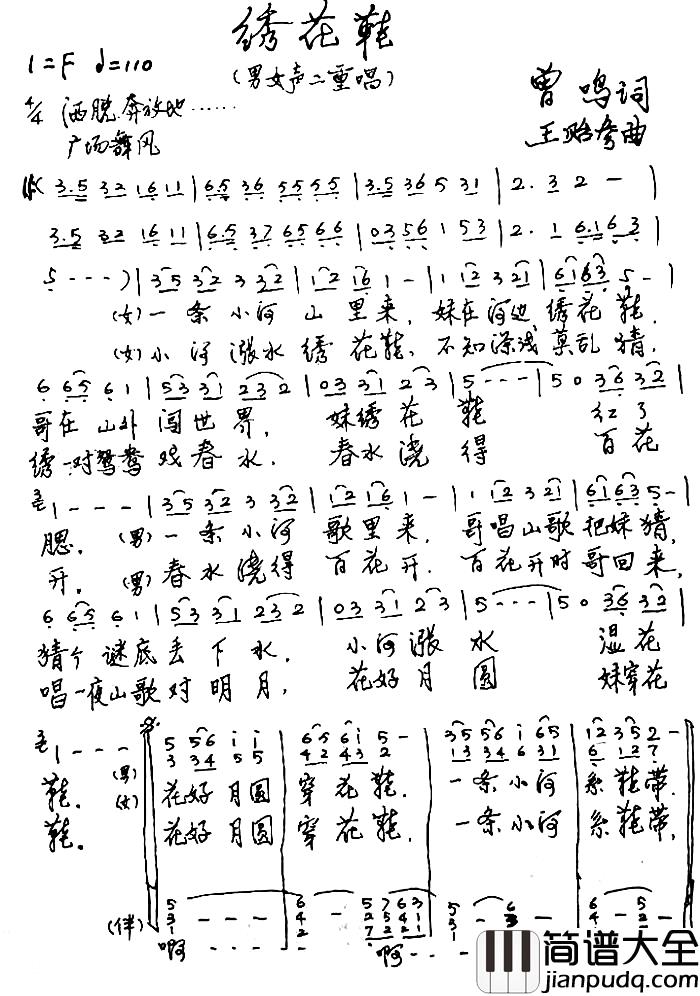 绣花鞋
(男女声二重唱)
1=F ♩=110
4/4 洒脱.奔放地……
广场舞风
曾鸣词
曲
3.5 32 16 11 | 6.5 36 55 55 | 3.5 36 5 31 | 2. 3 2 - |
3.5 32 16 11 | 6.5 37 65 66 | 03 56 1 53 | 2. 1 6.1 63 |
5 - - - ) | 35 32 3 32 | 12 16 1 - | 1 12 3 21 | 61 63 5 - |
(女)一条小河山里来,妹在河边绣花鞋,
(女)小河涨水绣花鞋,不知深浅莫乱猜,
6 65 6 1 | 53 31 23 2 | 03 31 2 3 | 5 - - - | 5 0 36 32 |
哥在山外闯世界,妹绣花鞋红了
绣一对鸳鸯戏春水.春水浇得百花
1 - - - | 35 32 3 32 | 12 16 1 - | 1 12 3 21 | 61 63 5 - |
腮.(男)一条小河歌里来,哥唱山歌把妹猜,
开.(男)春水浇得百花开.百花开时哥回来,
6 65 6 1 | 53 31 23 2 | 03 31 2 3 | 5 - - - | 5 0 36 32 |
猜个谜底丢下水.小河涨水湿花
唱一夜山歌对明月,花好月圆妹穿花
1 - - -
5 56 i i | 6 5 6 i 5 - | 35 56 i 65 | 12 35 2 - |
3 34 5 5 | 4 2 4 3 2 | 13 34 6 31 | 6 12 7 |
鞋.(男)花好月圆穿花鞋.一条小河系鞋带.
鞋.(女)花好月圆穿花鞋,一条小河系鞋带,
(伴)
啊 - - - 啊 - - -
简谱大全
jianpudq.com